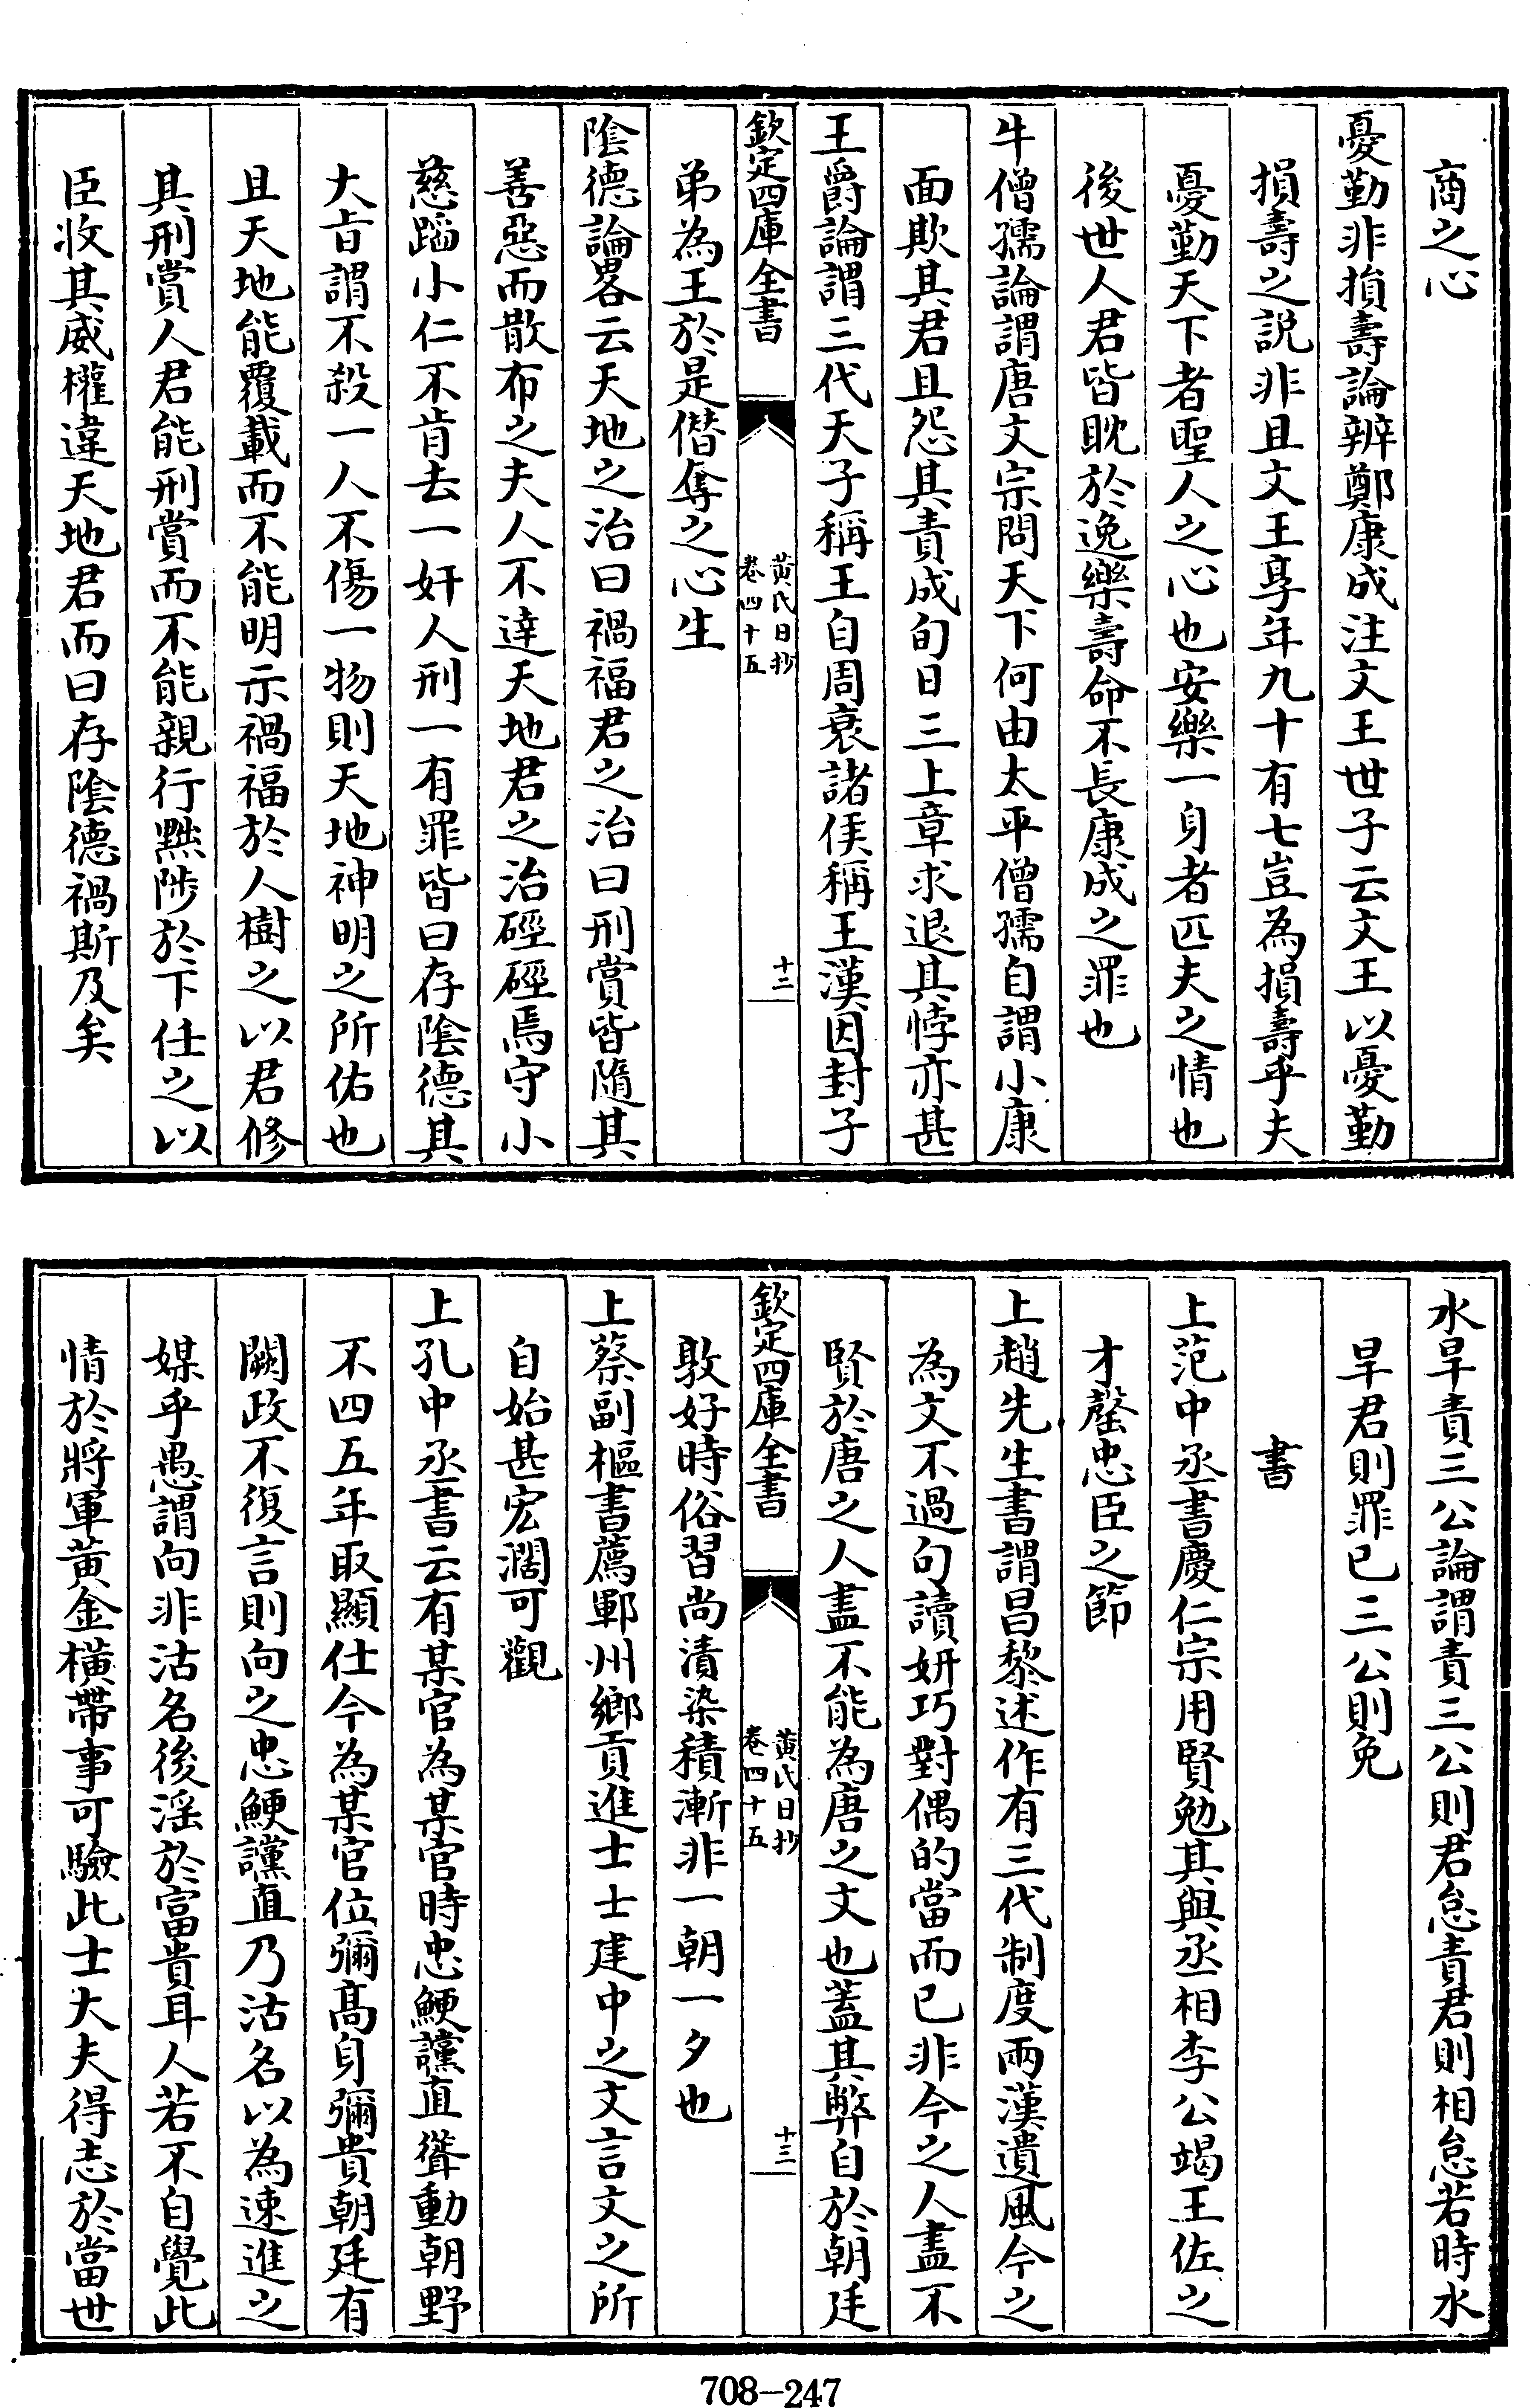 商之心
憂勤非損壽論辨鄭康成注文王世子云文王以憂勤
損壽之說非且文王享年九十有七豈為損壽乎夫
憂勤天下者聖人之心也安樂一身者匹夫之情也
後世人君皆眈於逸樂壽命不長康成之罪也
牛僧孺論謂唐文宗問天下何由太平僧孺自謂小康
面欺其君且怨其責成旬日三上章求退其悖亦甚
王爵論謂三代天子稱王自周衰諸侯稱王漢因封子
欽定四庫全書
黄氏日抄
卷四十五
十二
弟為王於是僭奪之心生
陰德論畧云天地之治曰禍福君之治曰刑賞皆隨其
善惡而散布之夫人不達天地君之治硜硜焉守小
慈蹈小仁不肯去一奸人刑一有罪皆曰存陰德其
大旨謂不殺一人不傷一物則天地神明之所佑也
且天地能覆載而不能明示禍福於人樹之以君修
其刑賞人君能刑賞而不能親行黜陟於下任之以
臣收其威權違天地君而曰存陰德禍斯及矣
水旱責三公論謂責三公則君怠責君則相怠若時水
旱君則罪已三公則免
書
上范中丞書慶仁宗用賢勉其與丞相李公竭王佐之
才罄忠臣之節
上趙先生書謂昌黎述作有三代制度兩漢遺風今之
為文不過句讀妍巧對偶的當而已非今之人盡不
賢於唐之人盡不能為唐之文也蓋其弊自於朝廷
欽定四庫全書
黄氏日抄
卷四十五
十三
敦好時俗習尚漬染積漸非一朝一夕也
上蔡副樞書薦鄆州鄉貢進士士建中之文言文之所
自始甚宏濶可觀
上孔中丞書云有某官為某官時忠鯁讜直聳動朝野
不四五年取顯仕今為某官位彌髙身彌貴朝廷有
闕政不復言則向之忠鯁讜直乃沽名以為速進之
媒乎愚謂向非沽名後淫於富貴耳人若不自覺此
情於將軍黄金橫帶事可驗此士大夫得志於當世
708-247